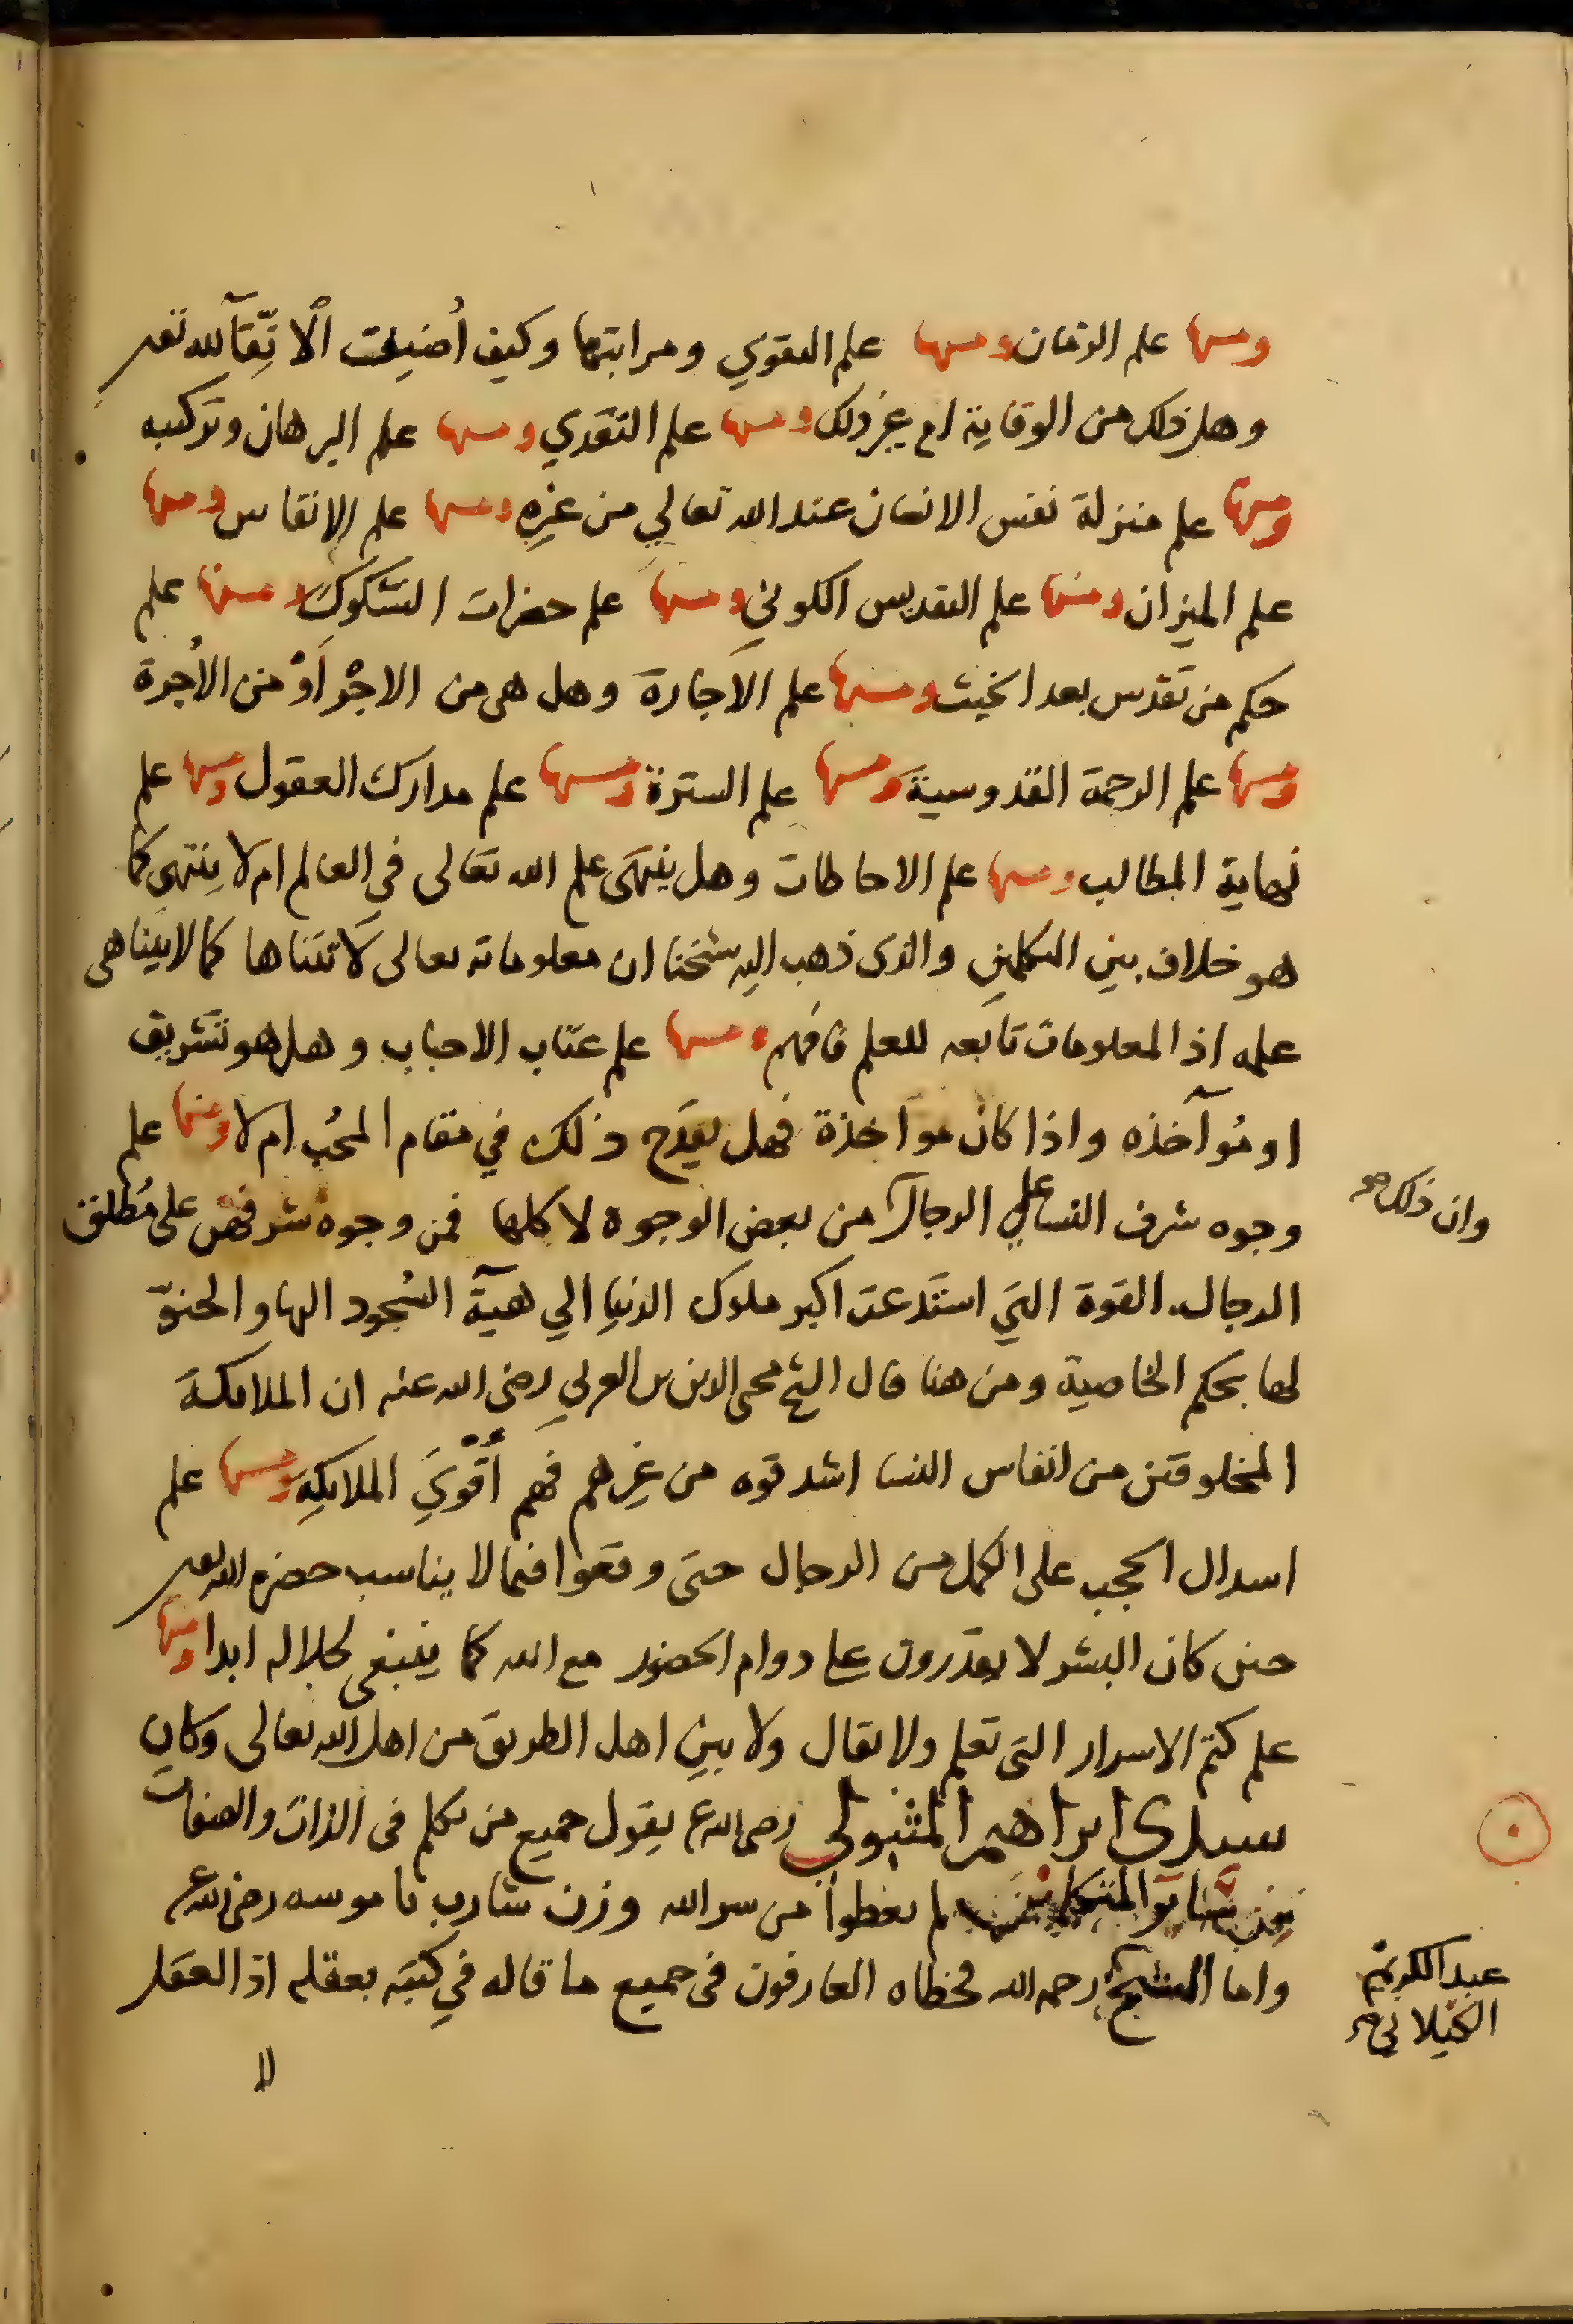 ومنها علم الزمان ومنها علم التقوي ومراتبها وكيف أضيفت الاتّقآ لله تعـ
وهل ذلك من الوقاية ام غير ذلك ومنها علم التعدي ومنها علم البرهان وتركيبه
ومنها علم منزلة نفس الانسان عند الله تعالي من غيره ومنها علم الانفاس ومنها
علم الميزان ومنها علم التقديس الكوني ومنها علم حضرات الشكوك ومنها علم
حكم من تقدس بعد الخبث ومنها علم الاجارة وهل هى من الاجْر أوْ من الأجرة
ومنها علم الرحمة القدوسية ومنها علم السترة ومنها علم مدارك العقول ومنها علم
نهاية المطالب ومنها علم الاحاطات وهل ينتهى علم الله تعالى فى العالم ام لا ينتهى كما
هو خلاف بين المتكلمين والذى ذهب اليه شيخنا ان معلوماته تعالى لا تتناها كما لا يتناهى
علمه اذ المعلومات تابعه للعلم فافهم ومنها علم عتاب الاحباب وهل هو تشريف
او مُوآخذه واذا كان موآخذة فهل يقدح ذلك في مقام المحُب ام لا ومنها علم
وجوه شرف النسا على الرجال من بعض الوجوه لا كلها فمن وجوه شرفهن على مُطلق
وان ذلك صح
الرجال القوة التي استدعت اكبر ملوك الدنيا الي هيآة السُجود اليها والحنوّ
لها بحكم الخاصية ومن هنا قال الشيخ محى الدين بن العربي رضى الله عنه ان الملائكة
المخلوقين من انفاس النسا اشد قوه من غيرهم فهم أقْوَي الملايكه ومنها علم
اسدال الحجب على الكمل من الرجال حتى وقعوا فيما لا يناسب حضرة الله تعـ
حين كان البشر لا يقدرون على دوام الحضور مع الله كما ينبغى لجلاله ابدا ومنها
علم كتم الاسرار التى تعلم ولا تقال ولا بين اهل الطريق من اهل الله تعالى وكان
سيدى ابراهيم المتبولى رضى الله عنه يقول جميع من تكلم فى الذات والصفات
المتكلمين لم يعطوا من سر الله وزن شارب ناموسه رضى الله عنه
واما الشيخ رحمه الله فخطاه العارفون فى جميع ما قاله في كتبه بعقله اذ العقل
عبد الكريم
الكيلاني صح
لا